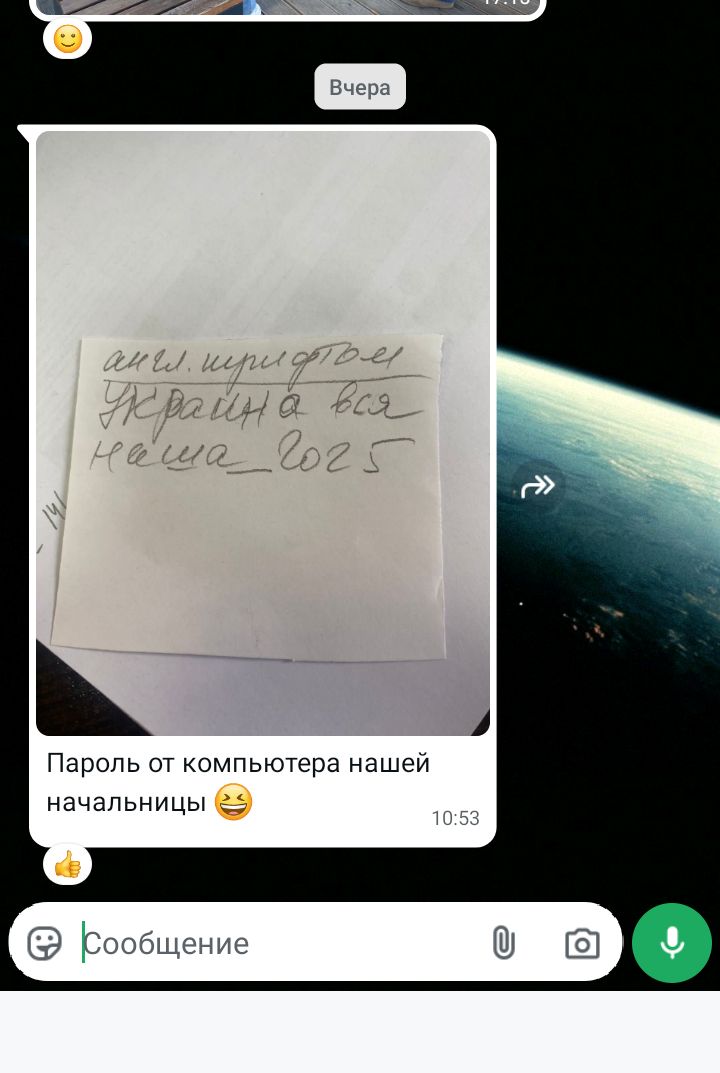 17:16
Вчера
англ. шрифтом
Украина вся
наша_2025
Пароль от компьютера нашей
начальницы 😆
10:53
Сообщение